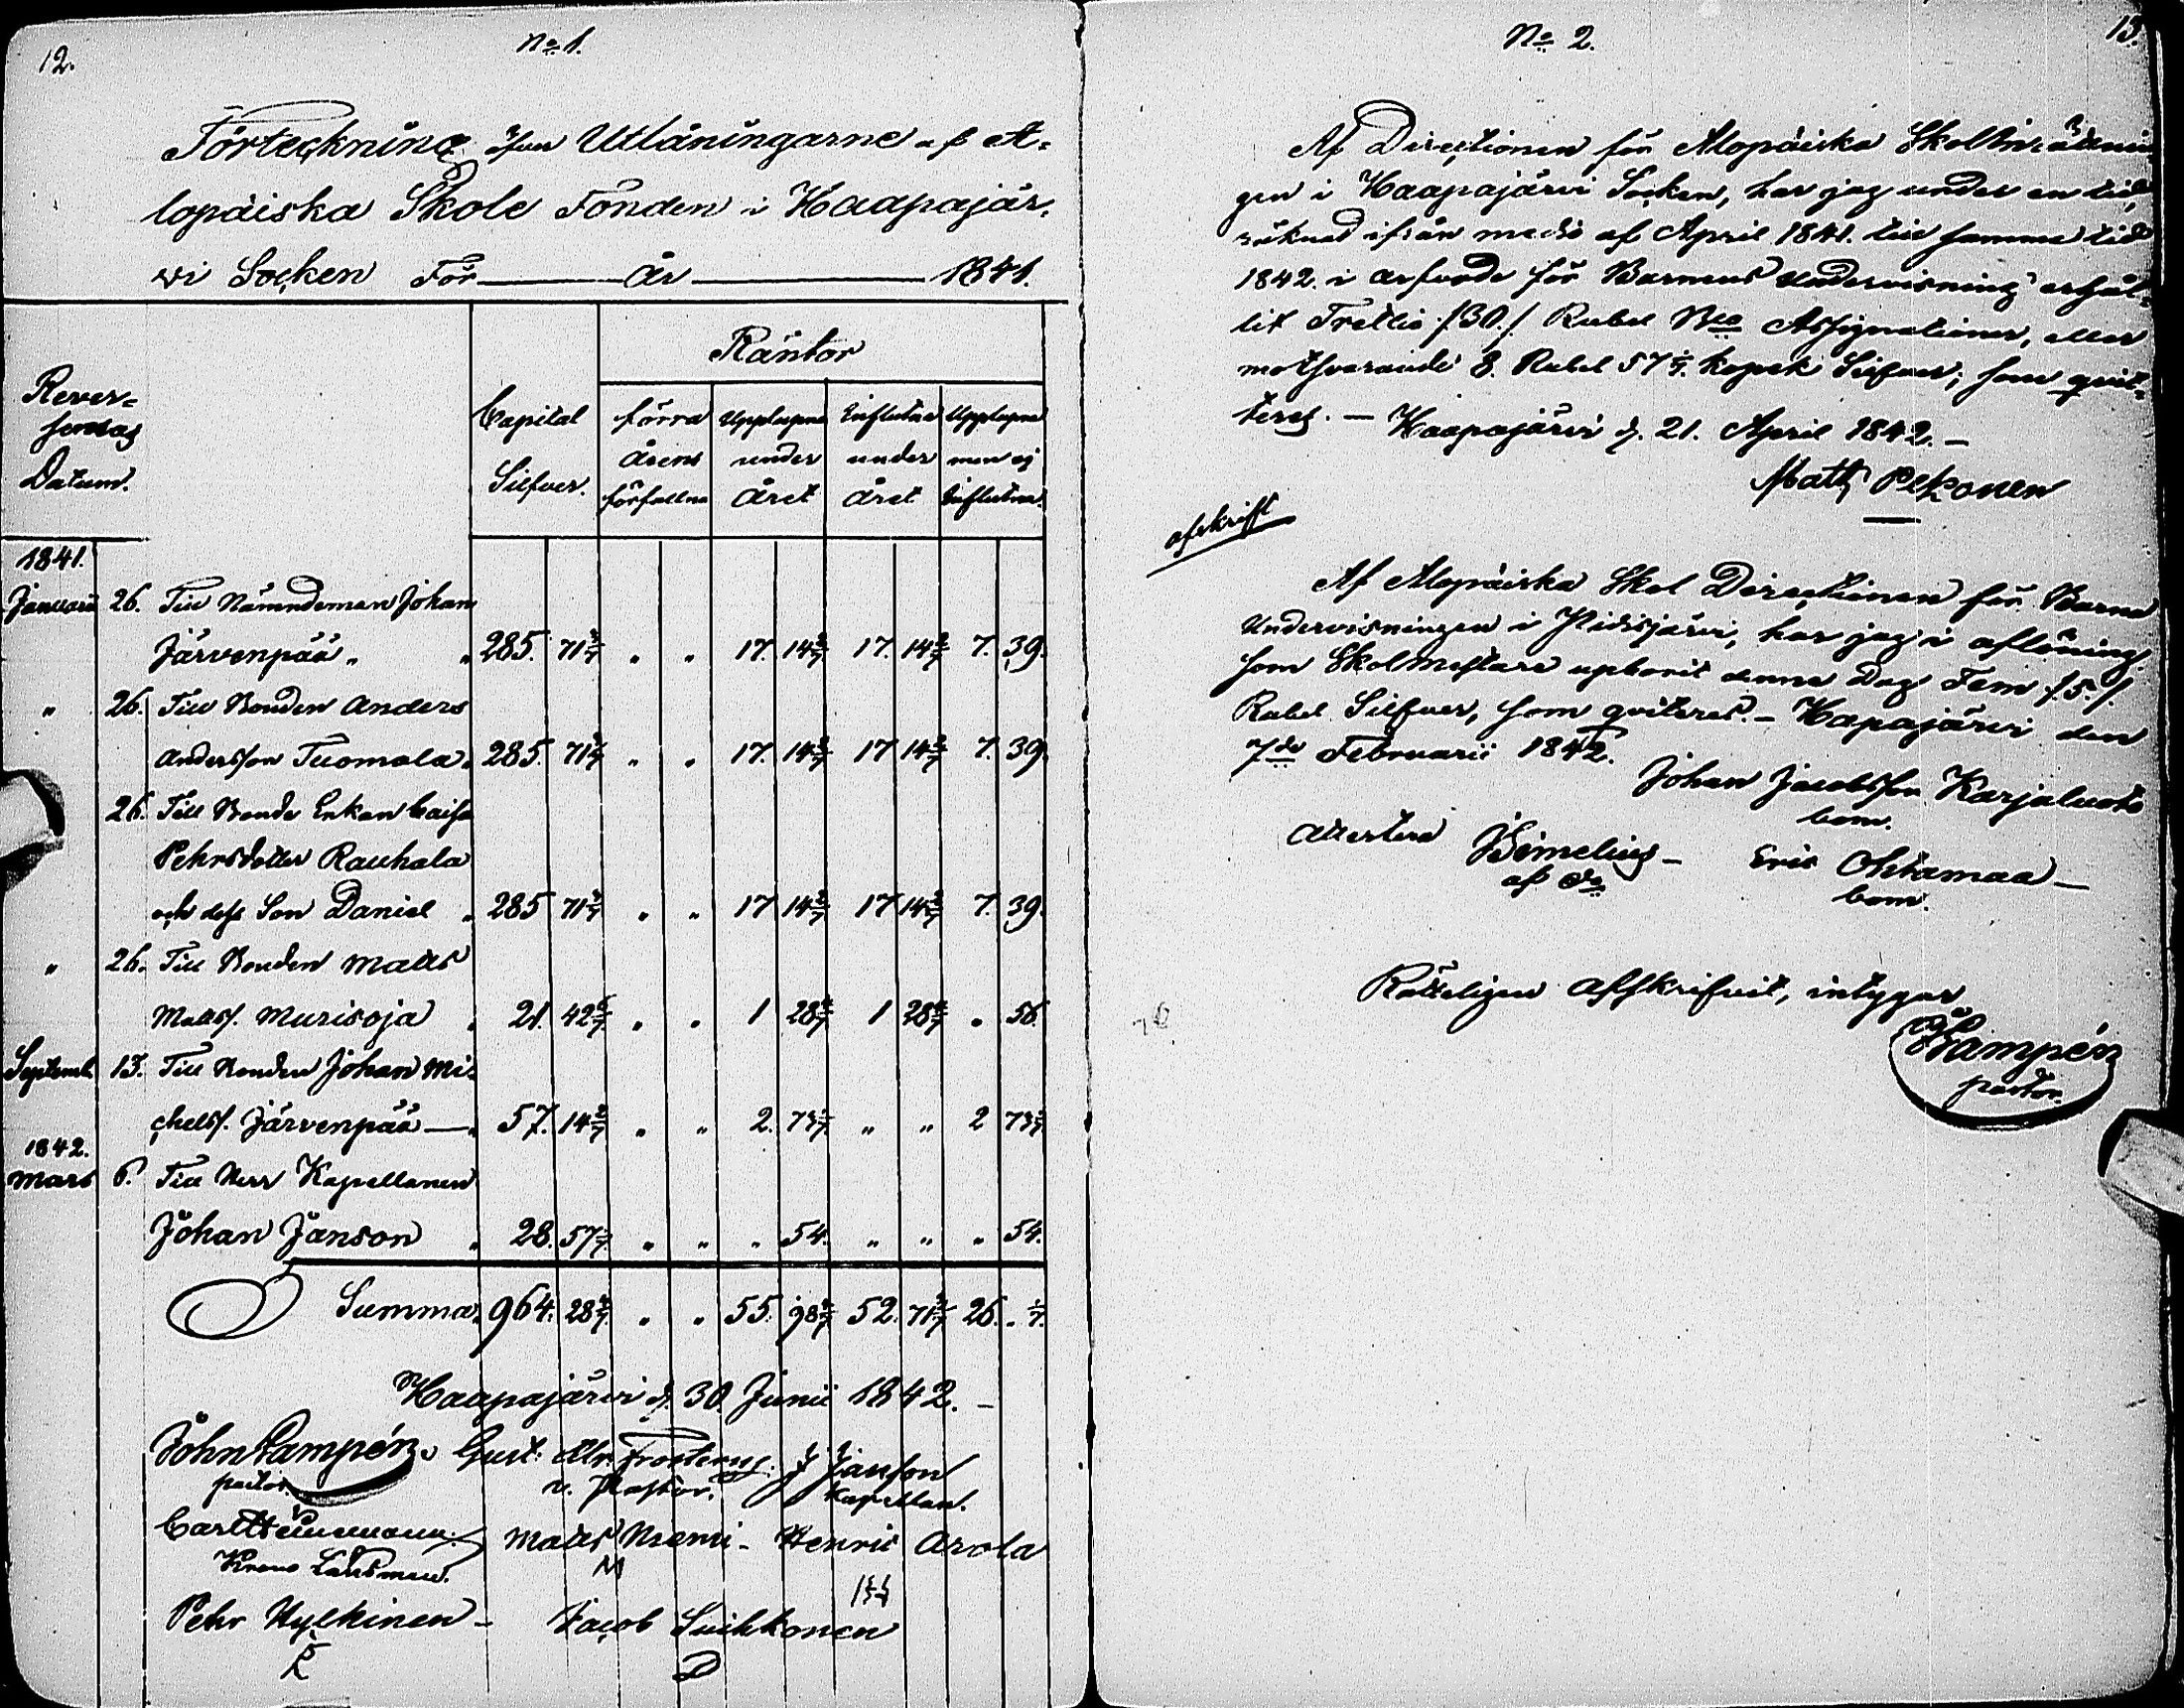 12.
No 1.
Förteckning öfver Utlåningarne af A-
lopäiska Skole Fonden i Haapajär-
vi Socken För — År — 1841.
Rever-
sernas
Datum.
Capital
Silfver.
Räntor
förra
Årens
förfallna
Upplupna
under
Året
Influtna
under
Året
Upplupna
men ej
Influtna.
1841.
Januarii 26. Till Nämndeman Johan
Järvenpää „ „ 285. 71 3/7 „ „ 17. 14 2/7 17. 14 2/7 7. 39.
„ 26. Till Bonden Anders
Andersson Tuomala „ 285. 71 3/7 „ „ 17. 14 2/7 17 14 2/7 7. 39.
26. Till Bonde Enkan Caisa
Pehrsdotter Rauhala
och dess Son Daniel „ 285 71 3/7 „ „ 17 14 2/7 17 14 2/7 7. 39.
„ 26. Till Bonden Matts
Matss. Murisoja „ 21. 42 6/7 „ „ 1 28 4/7 1 28 4/7 „ 56.
Septemb. 13. Till Bonden Johan Mi-
chelss. Järvenpää — „ 57. 14 2/7 „ „ 2. 73 1/7 „ „ 2 73 1/7.
1842.
Mars 6. Till Herr Kapellanen
Johan Janson „ 28. 57 1/7 „ „ „ 54. „ „ „ 54.
Summa. 964. 28 4/7. „ „ 55. 98 4/7 52. 71 3/7 26. „ 1/7.
Haapajärvi d. 30 Junii 1842. —
John Lampén Gust. Frosterus. J Janson
pastor v. Pastor. Kapellan.
Carl
Krono Länsman.
Matts Niemi - Henric Arola
M
Pehr Hylkinen - Jacob Suikkonen
No 2.
13.
Af Directionen för Alopäiska Skol Inrättnin
gen i Haapajärvi Socken, har jag under en tid,
räknad ifrån medio af April 1841. till samma tid
1842. i arfvode för Barnens Undervisning erhål-
lit Trettio /30./ Rubel Bco Assignationer, eller
motsvarande 8. Rubel 57 1/7. kopek Silfver; som qvit-
teras. — Haapajärvi d. 21. April 1842. —
Matts Pekonen
afskrift
Af Alopäiska Skol Directionen för Barna
Undervisningen i Pidisjärvi, har jag i aflöning
som Skolmästare upborit denna Dag Fem /.5./.
Rubel Silfver, som qviteras. — Hapajärvi den
7de Februarii 1842.
Johan Jacobsson Karjaluoto
bom.
Attestera
Eric Ohtamaa —
bom.
Rätteligen affskrifvit, intygar
Lampén
pastor.